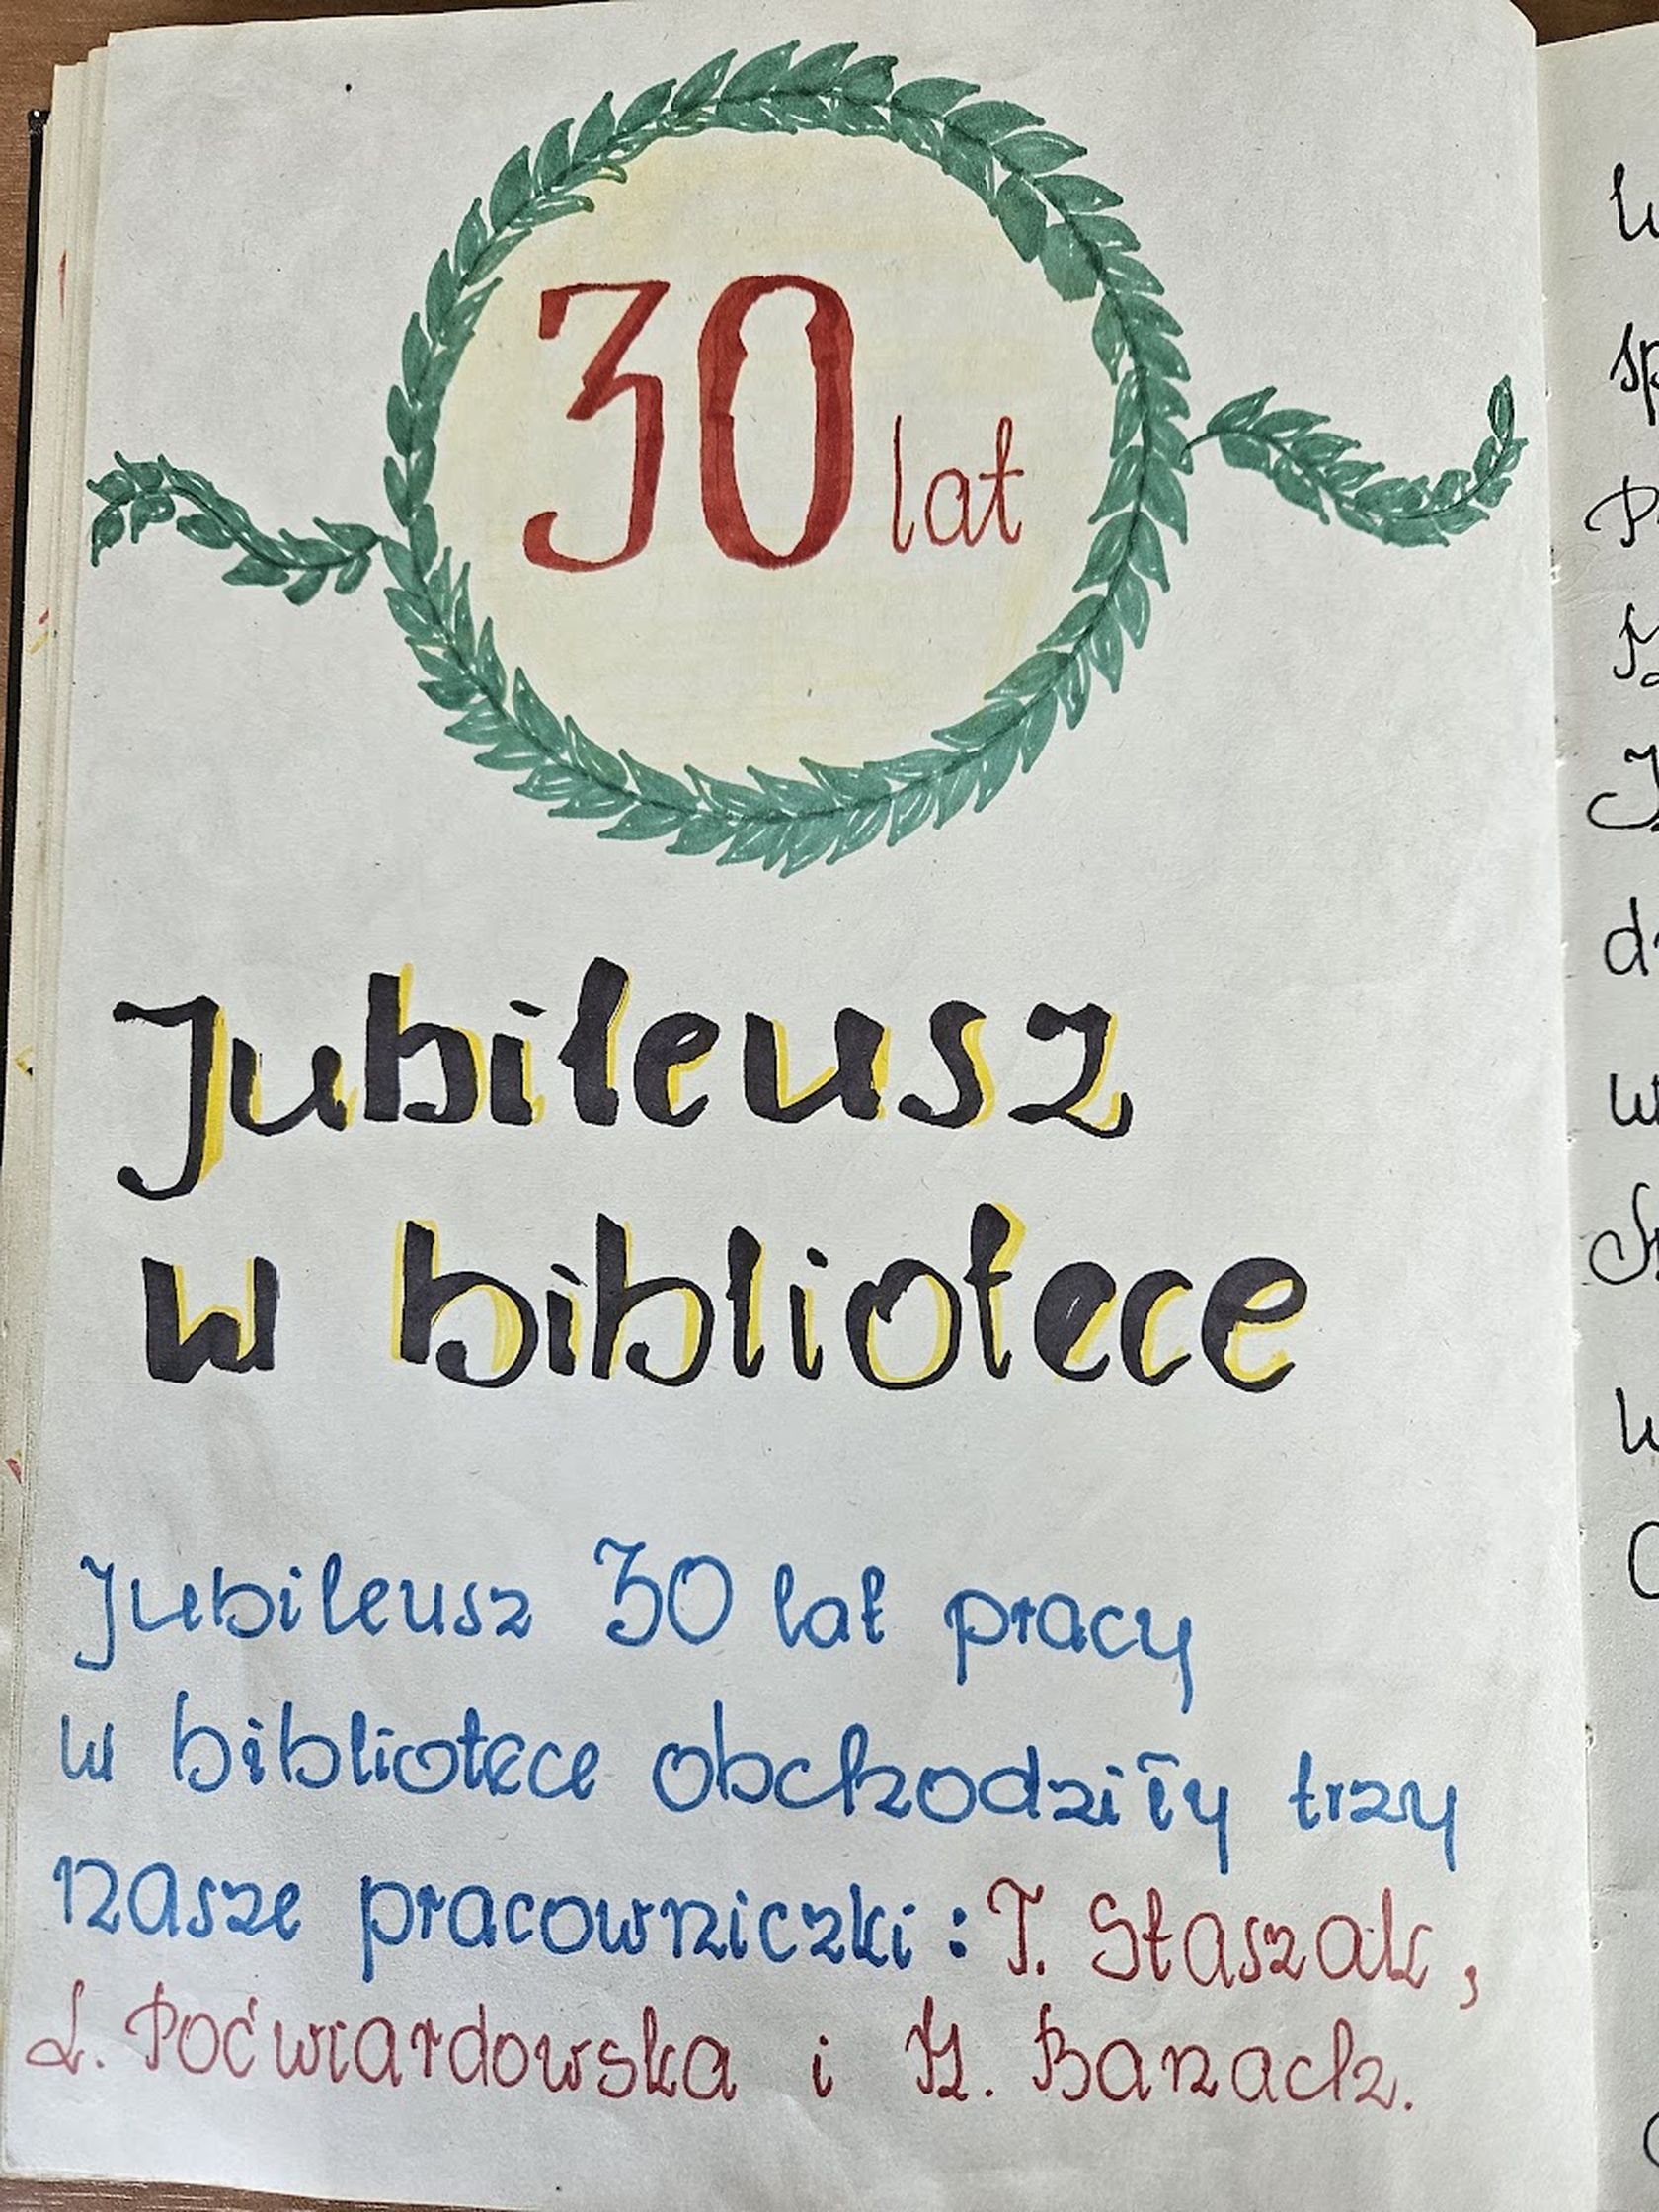 30 lat
Jubileusz
w bibliotece
Jubileusz 30 lat pracy
w bibliotece obchodziły trzy
nasze pracowniczki: T. Staszak,
L. Poćwiardowska i H. Banach.